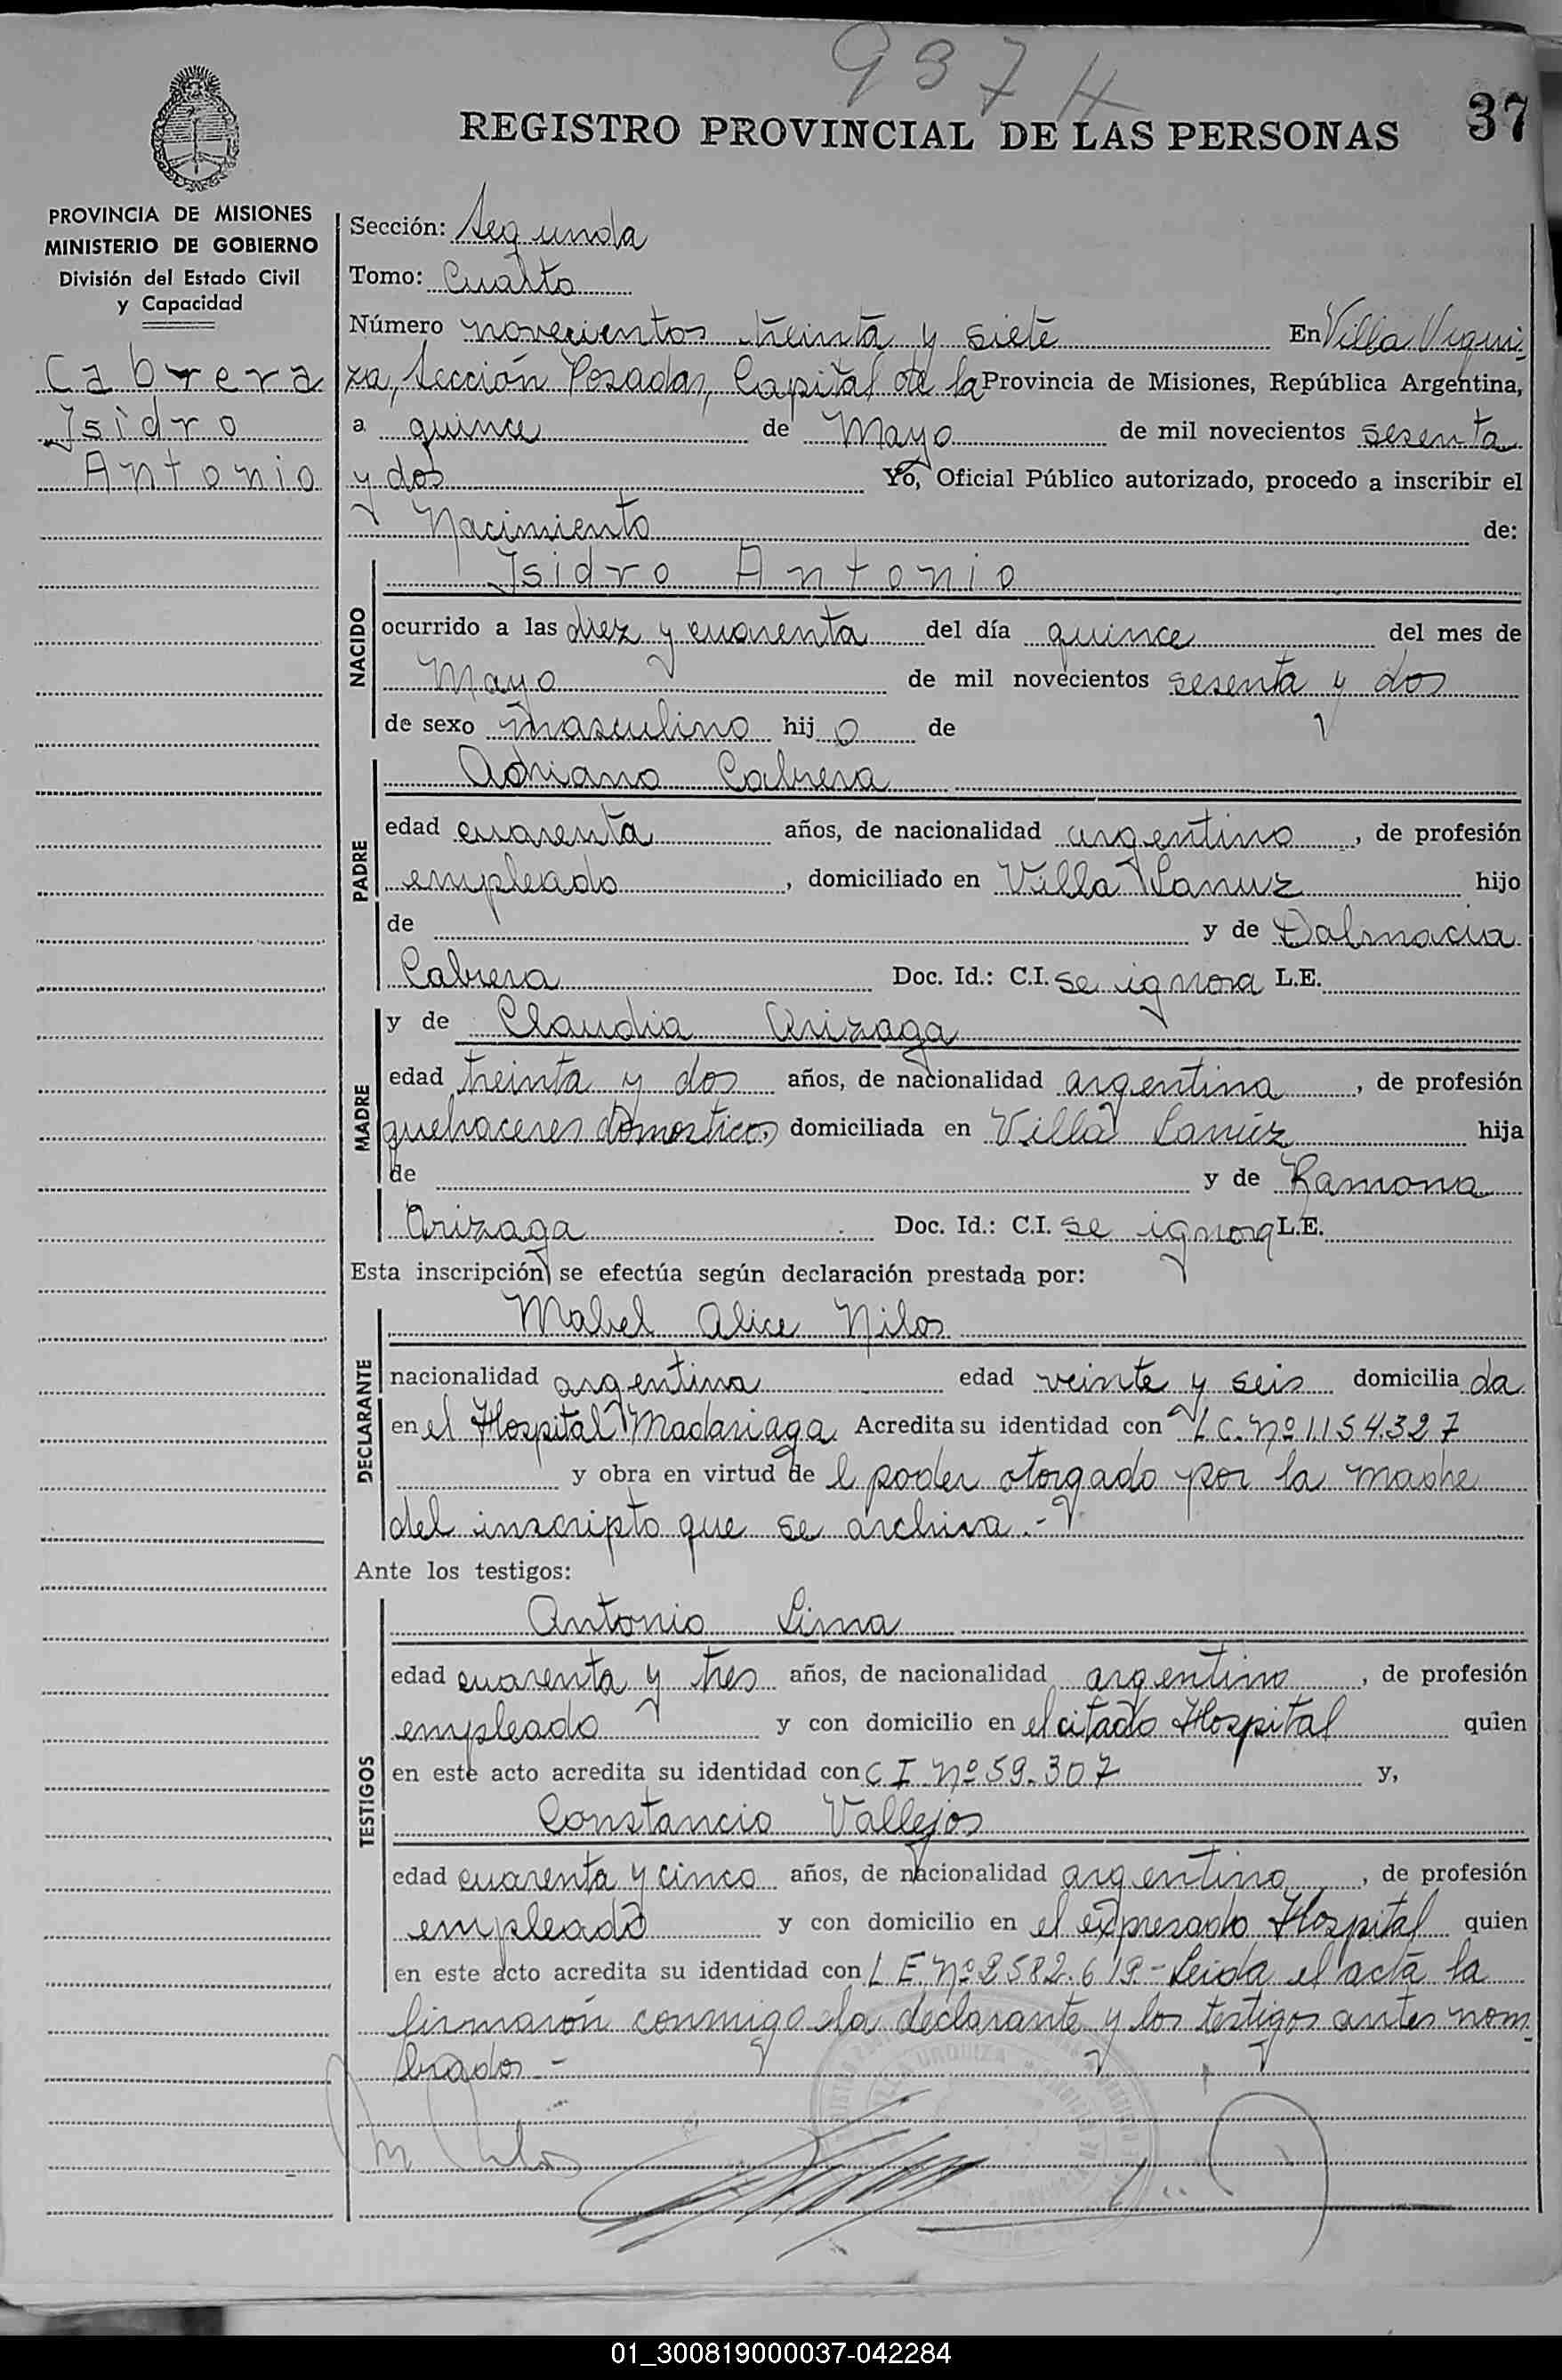 937
REGISTRO PROVINCIAL DE LAS PERSONAS
37
PROVINCIA DE MISIONES
MINISTERIO DE GOBIERNO
División del Estado Civil
y Capacidad
Cabrera
Isidro
Antonio
Sección: Segunda
Tomo: Cuarto
Número novecientos treinta y siete En Villa Urqui-
za, Sección Posadas, Capital de la Provincia de Misiones, República Argentina,
a quince de Mayo de mil novecientos sesenta
y dos Yo, Oficial Público autorizado, procedo a inscribir el
Nacimiento de:
NACIDO
Isidro Antonio
ocurrido a las diez y cuarenta del día quince del mes de
Mayo de mil novecientos sesenta y dos
de sexo masculino hijo de
PADRE
Adriano Cabrera
edad cuarenta años, de nacionalidad argentino, de profesión
empleado, domiciliado en Villa Lanuz hijo
de y de Dalmacia
Cabrera Doc. Id.: C.I. se ignora L.E.
MADRE
y de Claudia Arizaga
edad treinta y dos años, de nacionalidad argentina, de profesión
quehaceres domésticos domiciliada en Villa Lanúz hija
de y de Ramona
Arizaga Doc. Id.: C.I. se ignora L.E.
Esta inscripción se efectúa según declaración prestada por:
DECLARANTE
Mabel Alice Nilos
nacionalidad argentina edad veinte y seis domiciliada
en el Hospital Madariaga Acredita su identidad con L C. Nº 1.154.327
y obra en virtud de l poder otorgado por la madre
del inscripto que se archiva.-
Ante los testigos:
TESTIGOS
Antonio Lima
edad cuarenta y tres años, de nacionalidad argentino, de profesión
empleado y con domicilio en el citado Hospital quien
en este acto acredita su identidad con C I Nº 59.307 y,
Constancio Vallejos
edad cuarenta y cinco años, de nacionalidad argentino, de profesión
empleado y con domicilio en el expresado Hospital quien
en este acto acredita su identidad con L E. Nº 2582.619- Leída el acta la
firmaron conmigo la declarante y los testigos antes nom-
brados.-
URQUIZA
01_300819000037-042284